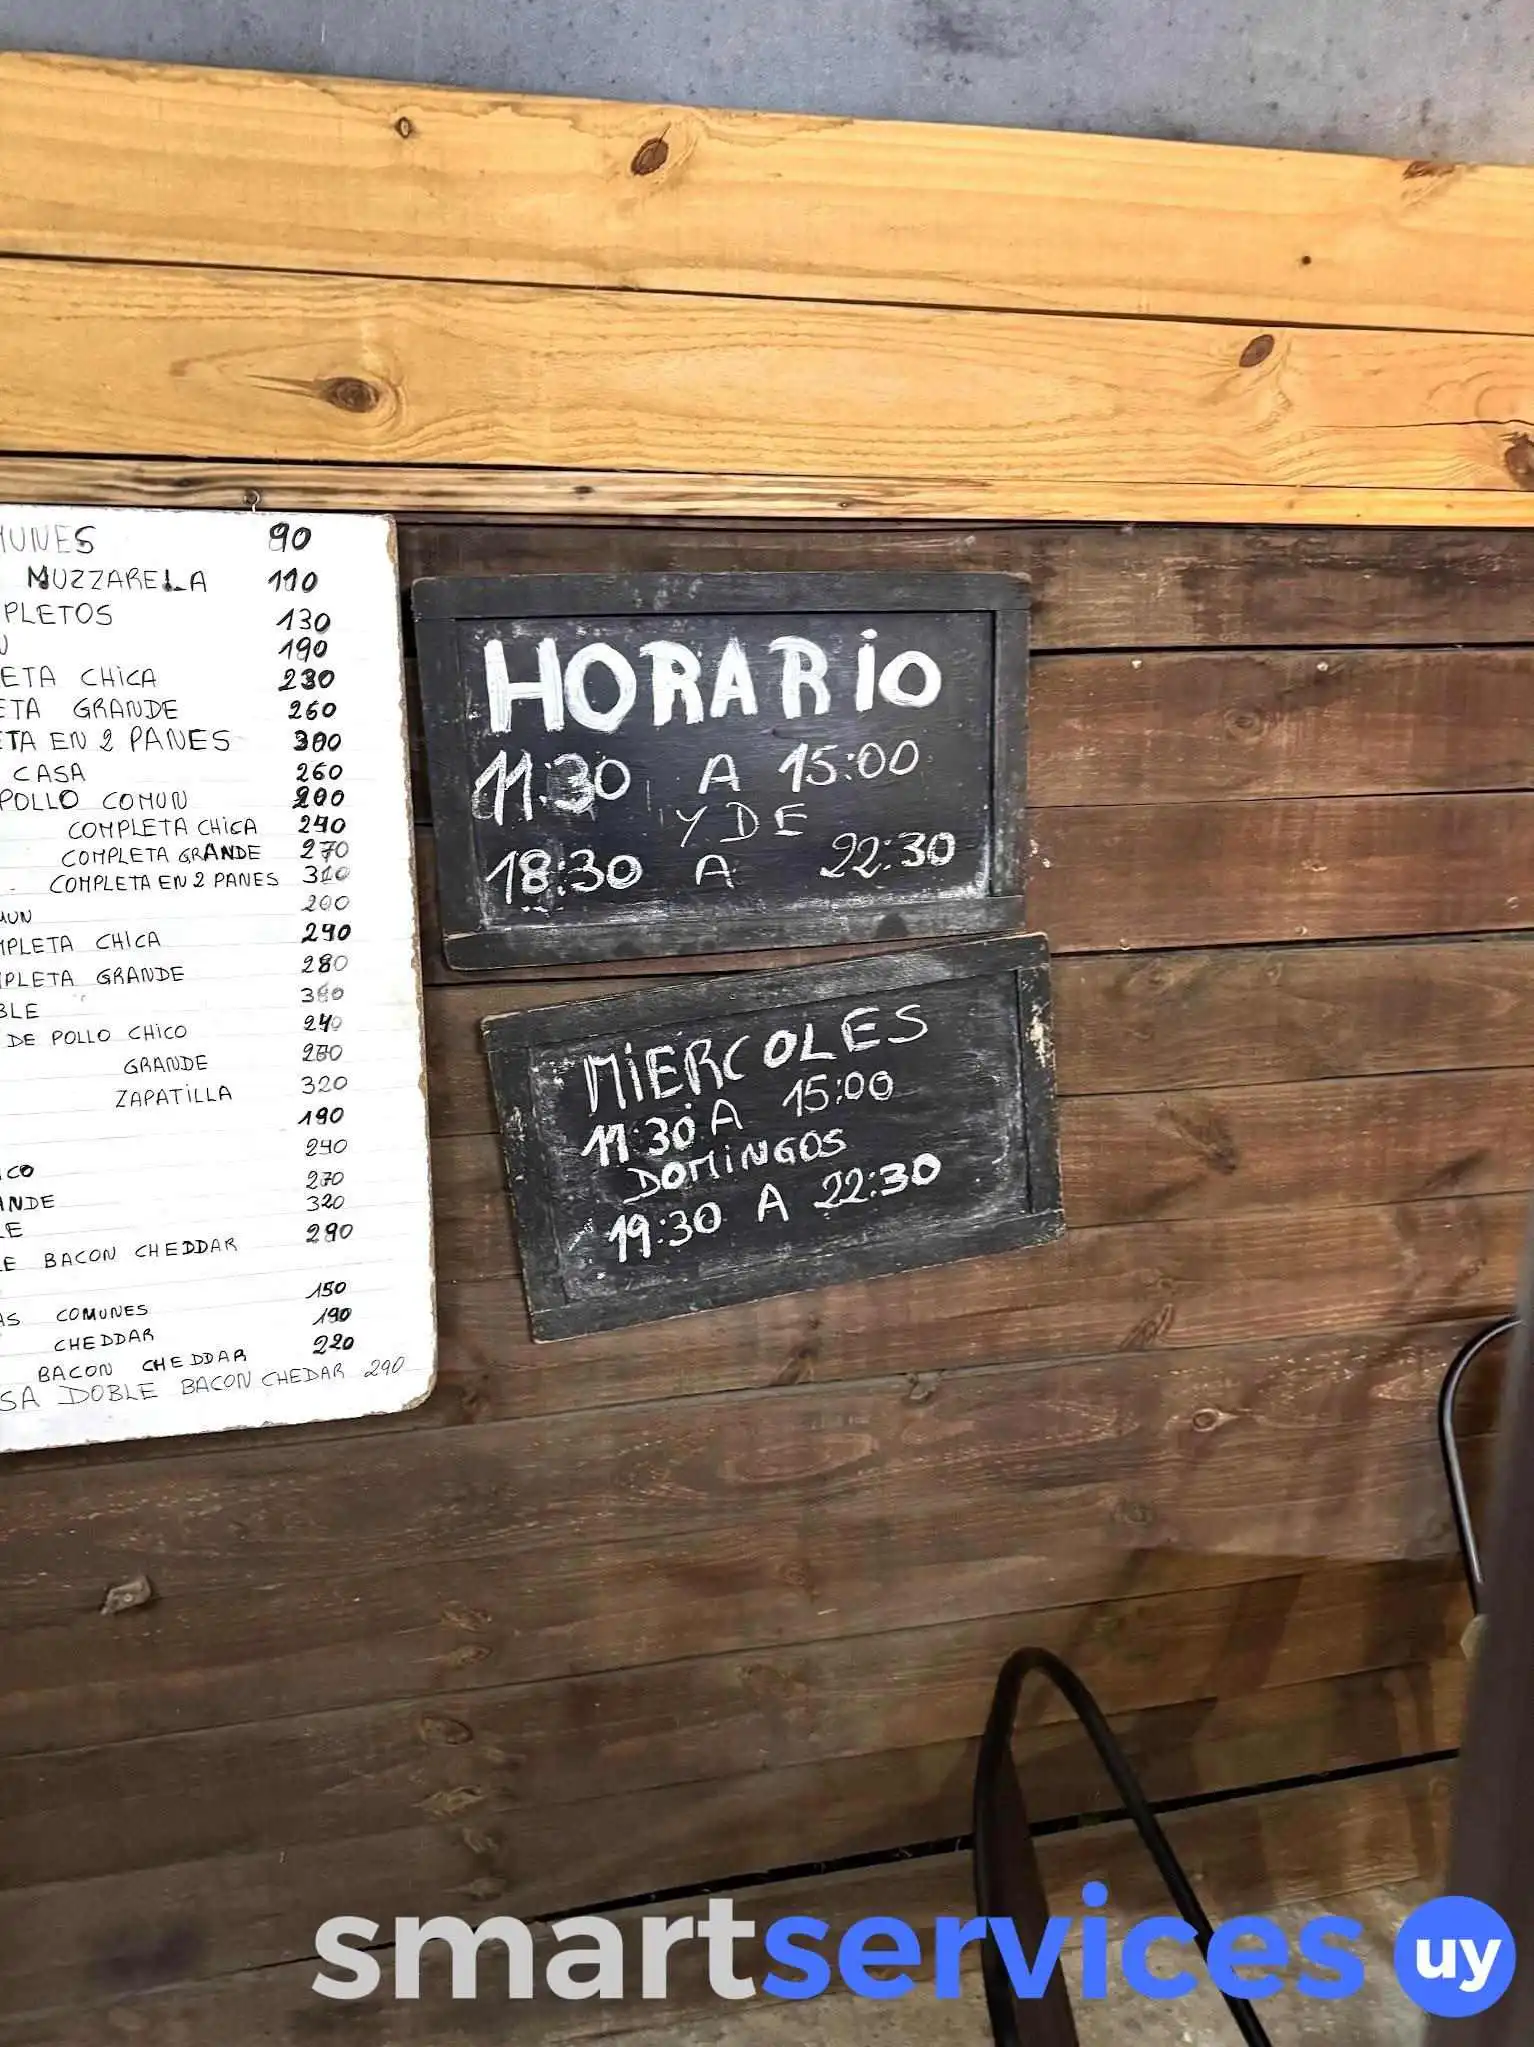 MUNES 90
MUZZARELA 110
PLETOS 130
190
ETA CHICA 230
ETA GRANDE 260
ETA EN 2 PANES 300
CASA 260
POLLO COMUN 200
COMPLETA CHICA 240
COMPLETA GRANDE 270
COMPLETA EN 2 PANES 310
MUN 200
MPLETA CHICA 290
MPLETA GRANDE 280
BLE
DE POLLO CHICO 240
GRANDE
ZAPATILLA 320
190
240
ICO 270
ANDE 320
LE
E BACON CHEDDAR 290
150
AS COMUNES 190
CHEDDAR 220
BACON CHEDDAR
SA DOBLE BACON CHEDAR 290
HORARIO
11:30 A 15:00
Y DE
18:30 A 22:30
MIERCOLES
11:30 A 15:00
DOMINGOS
19:30 A 22:30
smartservices uy